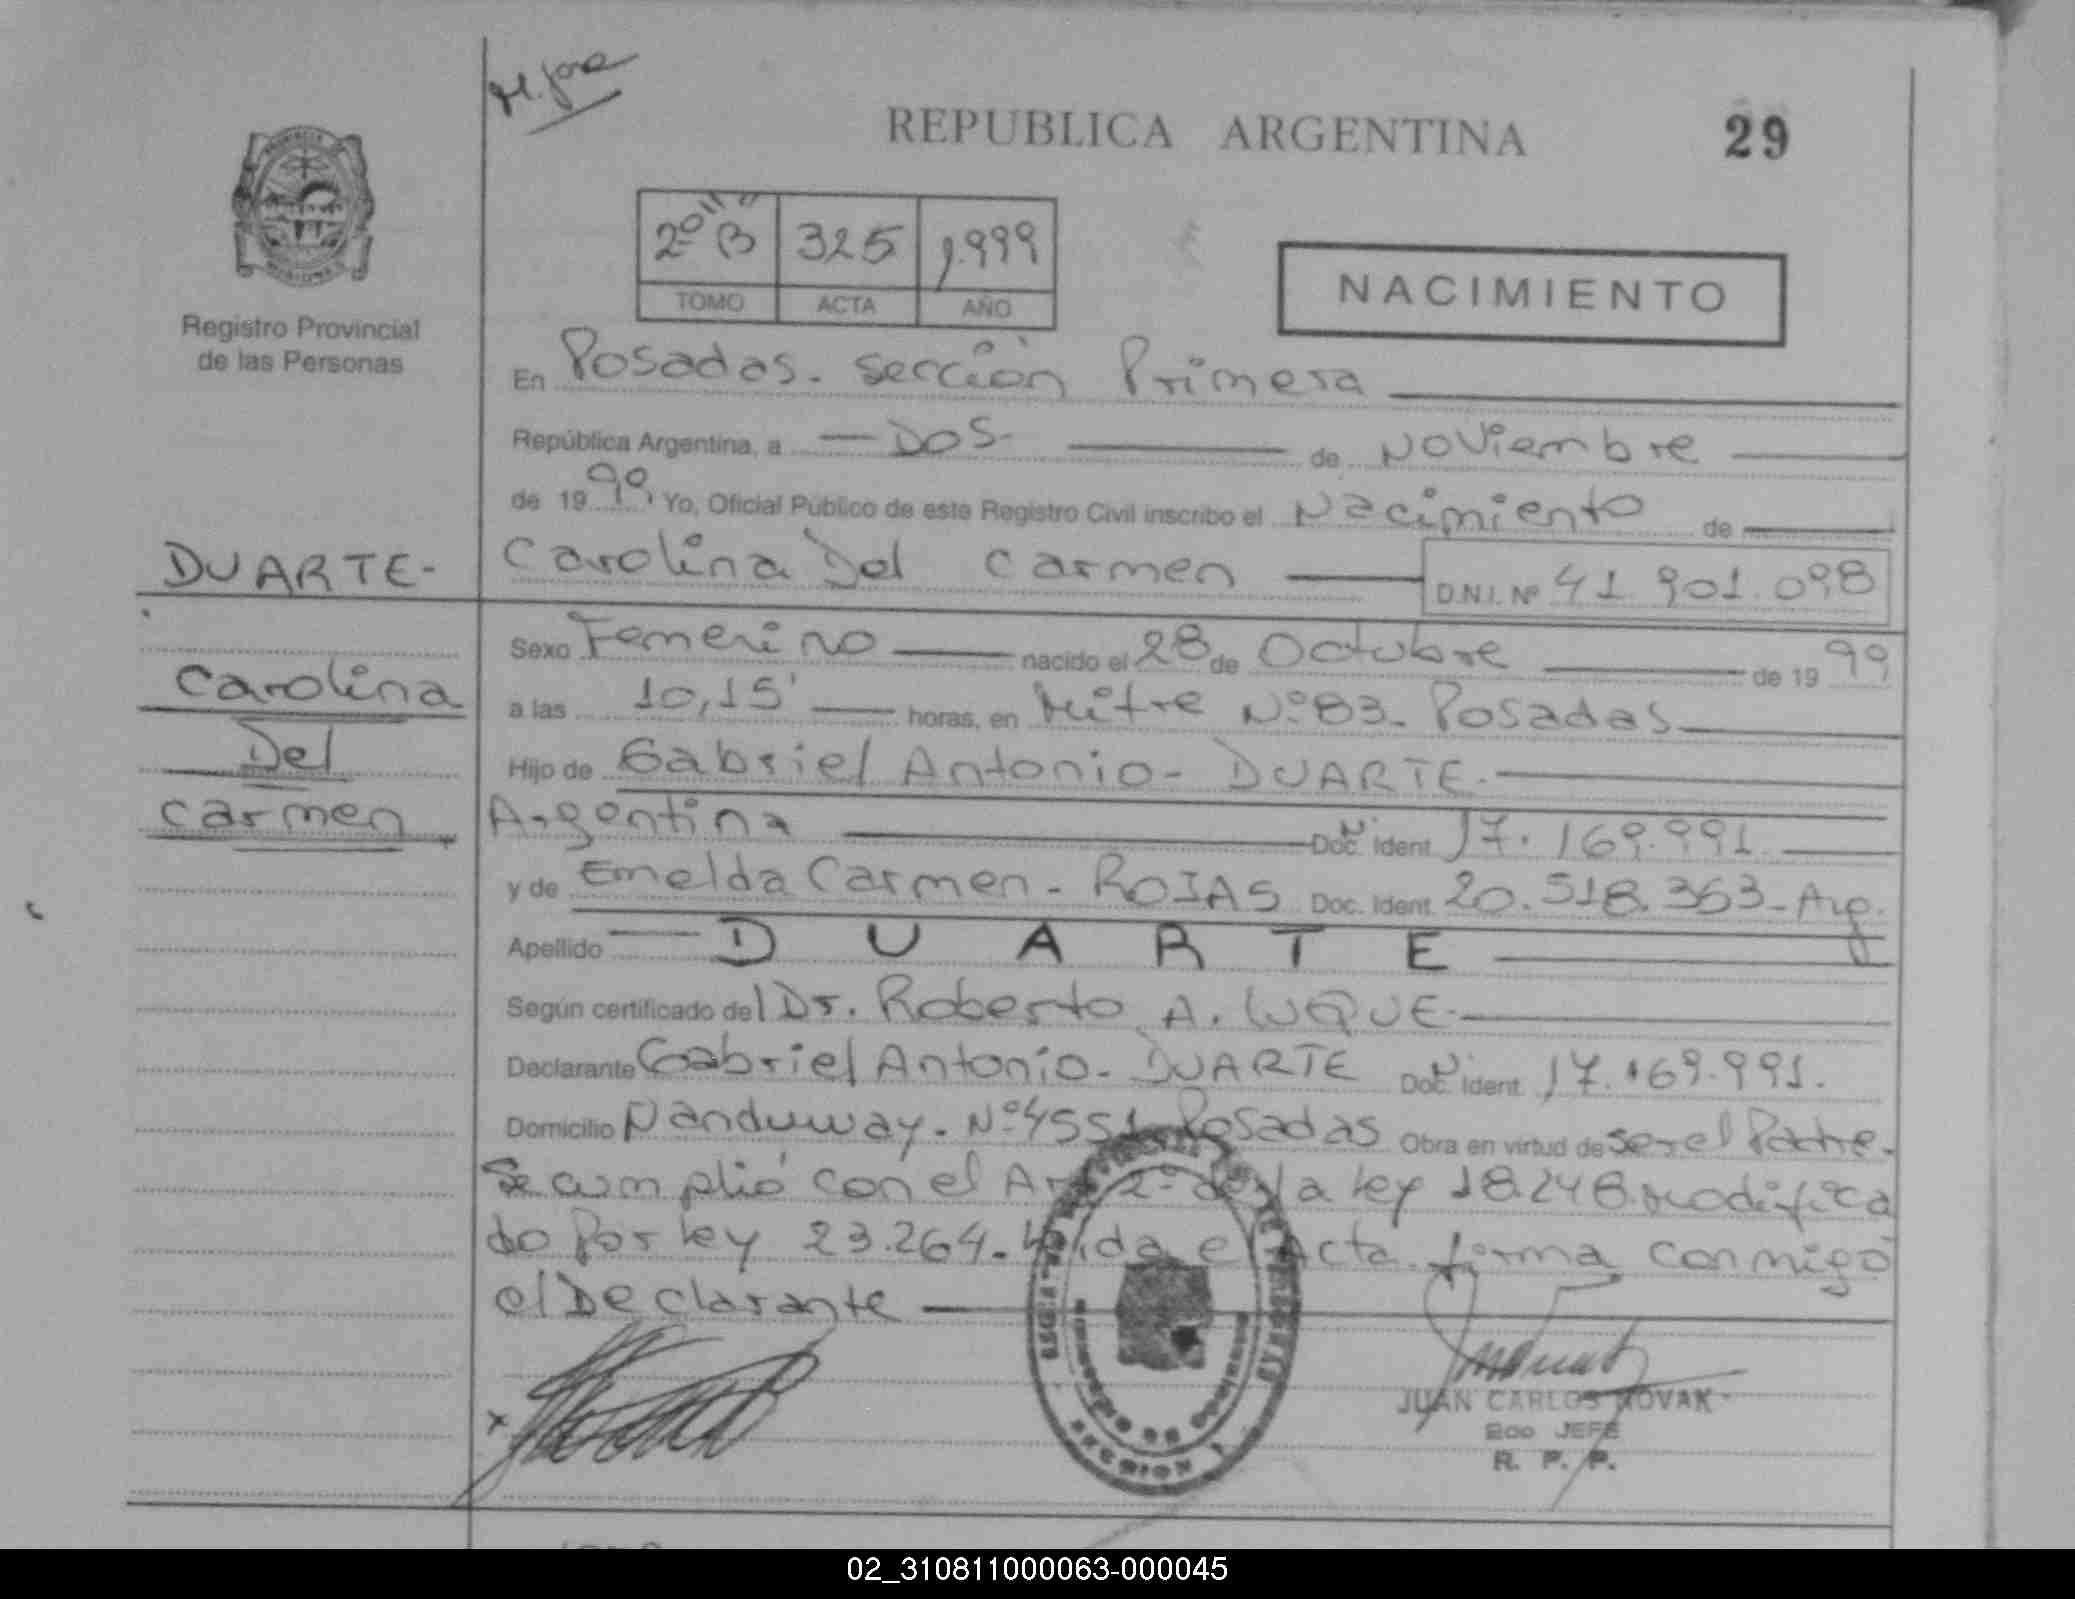 REPUBLICA ARGENTINA
29
2º "B" 325 1.999
TOMO ACTA AÑO
NACIMIENTO
Registro Provincial
de las Personas
En Posadas. sección Primera
República Argentina, a DOS. de Noviembre
de 1999. Yo, Oficial Público de este Registro Civil inscribo el Nacimiento de
DUARTE-
Carolina Del Carmen D.N.I. Nº 41.901.098
Sexo Femenino nacido el 28 de Octubre de 1999
Carolina
a las 10,15' horas, en Mitre Nº 83. Posadas
Del
Hijo de Gabriel Antonio - DUARTE.
Carmen.
Argentina Doc. Ident. 17.169.991.
y de Emelda Carmen - ROJAS Doc. Ident. 20.518.363 - Arg.
Apellido DUARTE
Según certificado del Dr. Roberto A. LUQUE.
Declarante Gabriel Antonio - DUARTE Doc. Ident. 17.169.991.
Domicilio Nanduway. Nº 4551 Posadas Obra en virtud de ser el Padre.
Se cumplió con el Art 2º de la ley 18.248 modifica
do Por ley 23.264. Leída el Acta. firma conmigo
el Declarante
JUAN CARLOS NOVAK
2do JEFE
R. P. P.
SECCION 1
02_310811000063-000045